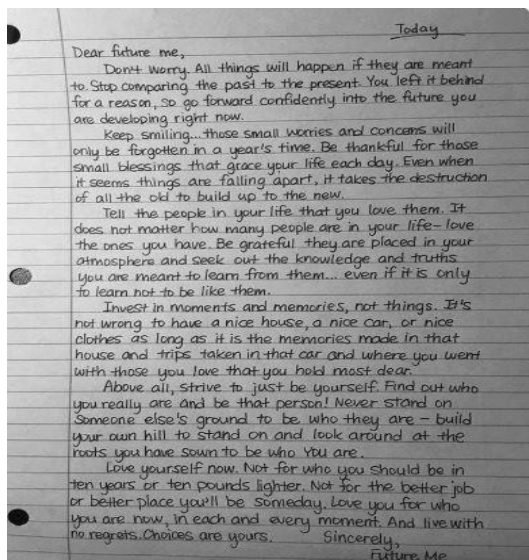 Today
Dear future me,
Don't worry. All things will happen if they are meant
to. Stop comparing the past to the present. You left it behind
for a reason, so go forward confidently into the future you
are developing right now.
Keep smiling...those small worries and concerns will
only be forgotten in a year's time. Be thankful for those
small blessings that grace your life each day. Even when
it seems things are falling apart, it takes the destruction
of all the old to build up to the new.
Tell the people in your life that you love them. It
does not matter how many people are in your life - love
the ones you have. Be grateful they are placed in your
atmosphere and seek out the knowledge and truths
you are meant to learn from them... even if it is only
to learn not to be like them.
Invest in moments and memories, not things. It's
not wrong to have a nice house, a nice car, or nice
clothes as long as it is the memories made in that
house and trips taken in that car and where you went
with those you love that you hold most dear.
Above all, strive to just be yourself. Find out who
you really are and be that person! Never stand on
someone else's ground to be who they are - build
your own hill to stand on and look around at the
roots you have sown to be who You are.
Love yourself now. Not for who you should be in
ten years or ten pounds lighter. Not for the better job
or better place you'll be someday. Love you for who
you are now, in each and every moment. And live with
no regrets. Choices are yours. Sincerely,
Future Me